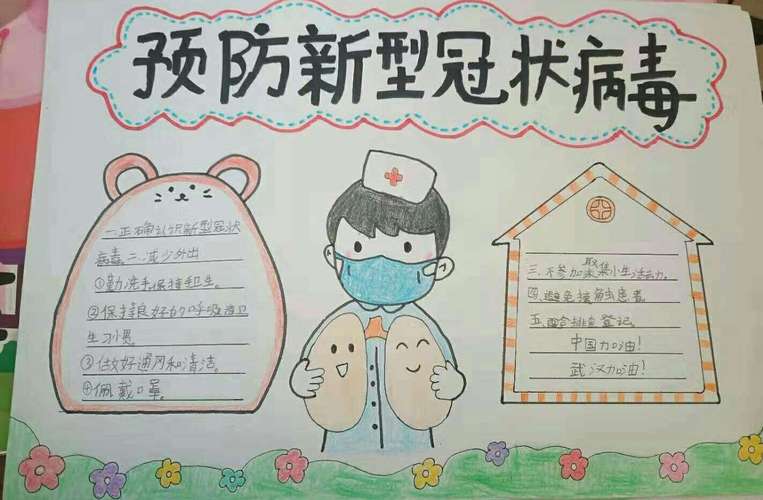 预防新型冠状病毒
一.正确认识新型冠状
病毒二.减少外出
①勤洗手保持卫生。
②保持良好的呼吸道卫
生习惯
③做好通风和清洁。
④佩戴口罩。
三.不参加聚集小生活动。
四.避免接触患者
五.配合排查登记。
中国加油!
武汉加油!